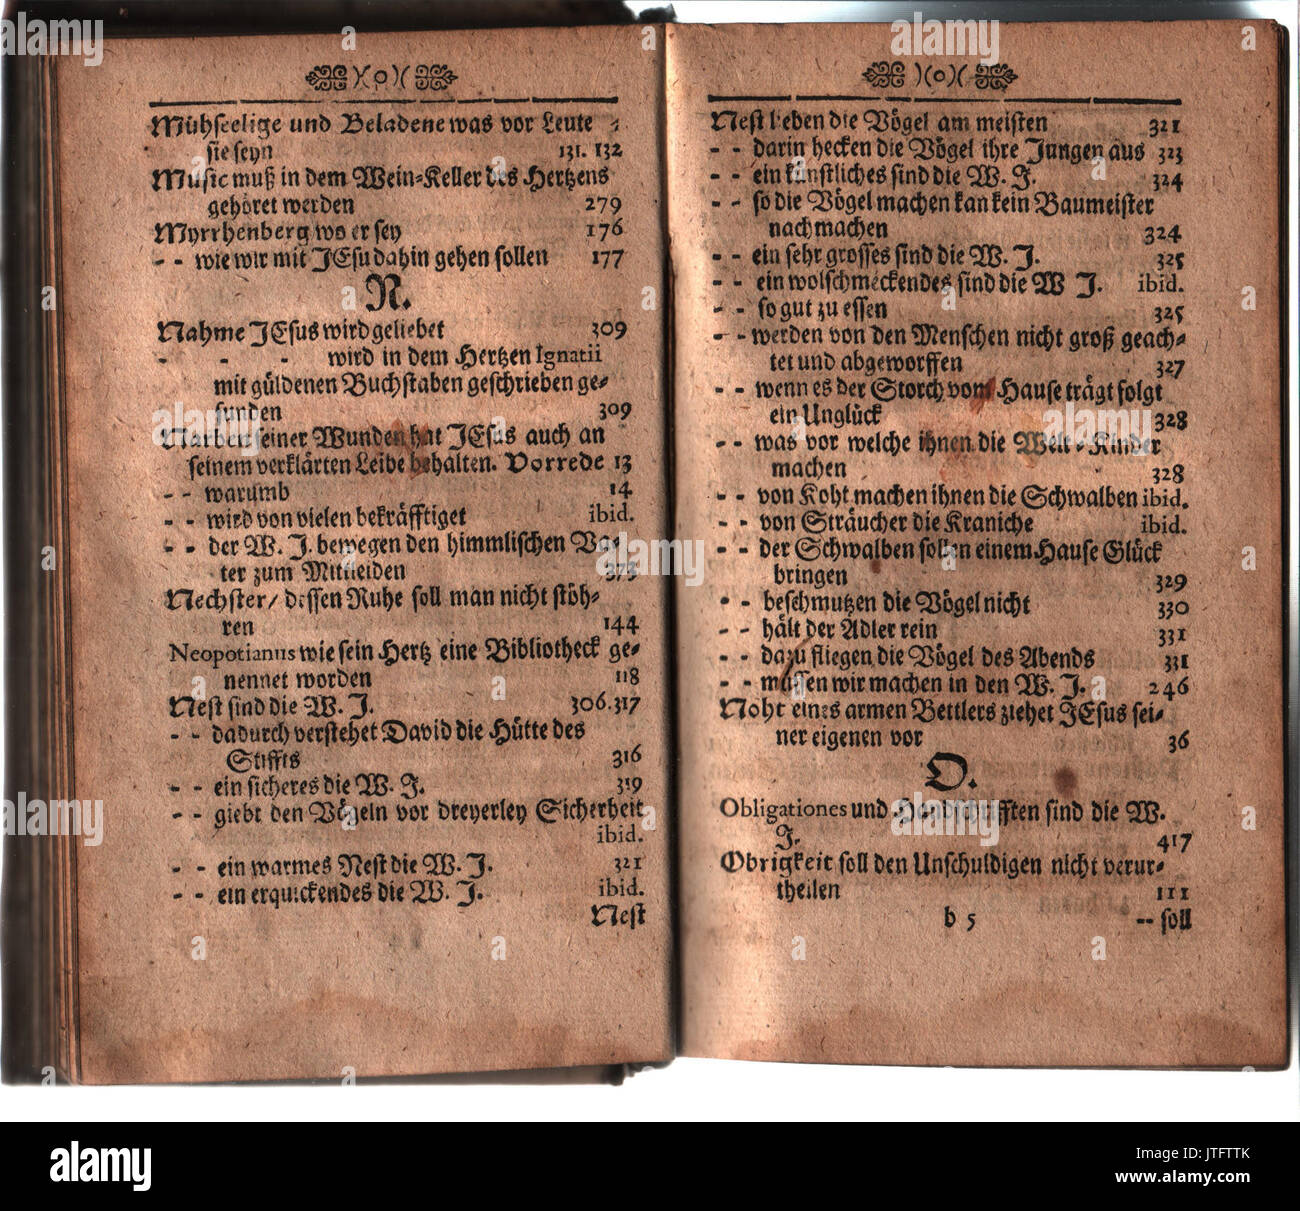 )(o)(
Mühseelige und Beladene was vor Leute
sie seyn 131. 132
Music muß in dem Wein-Keller des Hertzens
gehöret werden 279
Myrrhenberg wo er sey 176
- - wie wir mit JEsu dahin gehen sollen 177
N.
Nahme JEsus wird geliebet 309
- - - wird in dem Hertzen Ignatii
mit güldenen Buchstaben geschrieben ge-
funden 309
Narben seiner Wunden hat JEsus auch an
seinem verklärten Leibe behalten. Vorrede 13
- - warumb 14
- - wird von vielen bekräfftiget ibid.
- - der W. J. bewegen den himmlischen Va-
ter zum Mitleiden 373
Nechster/ dessen Ruhe soll man nicht stöh-
ren 144
Neopotianus wie sein Hertz eine Bibliotheck ge-
nennet worden 118
Nest sind die W. J. 306. 317
- - dadurch verstehet David die Hütte des
Stiffts 316
- - ein sicheres die W. J. 319
- - giebt den Vögeln vor dreyerley Sicherheit
ibid.
- - ein warmes Nest die W. J. 321
- - ein erquickendes die W. J. ibid.
Nest
)(o)(
Nest lieben die Vögel am meisten 321
- - darin hecken die Vögel ihre Jungen aus 323
- - ein künstliches sind die W. J. 324
- - so die Vögel machen kan kein Baumeister
nachmachen 324
- - ein sehr grosses sind die W. J. 325
- - ein wolschmeckendes sind die W J. ibid.
- - so gut zu essen 325
- - werden von den Menschen nicht groß geach-
tet und abgeworffen 327
- - wenn es der Storch vom Hause trägt folgt
ein Unglück 328
- - was vor welche ihnen die Welt-Kinder
machen 328
- - von Koht machen ihnen die Schwalben ibid.
- - von Sträucher die Kraniche ibid.
- - der Schwalben sollen einem Hause Glück
bringen 329
- - beschmutzen die Vögel nicht 330
- - hält der Adler rein 331
- - dazu fliegen die Vögel des Abends 331
- - müssen wir machen in den W. J. 246
Noht eines armen Bettlers ziehet JEsus sei-
ner eigenen vor 36
O.
Obligationes und Handschrifften sind die W.
J. 417
Obrigkeit soll den Unschuldigen nicht verur-
theilen 111
b 5 -- soll
alamy
Image ID: JTFTTK
www.alamy.com